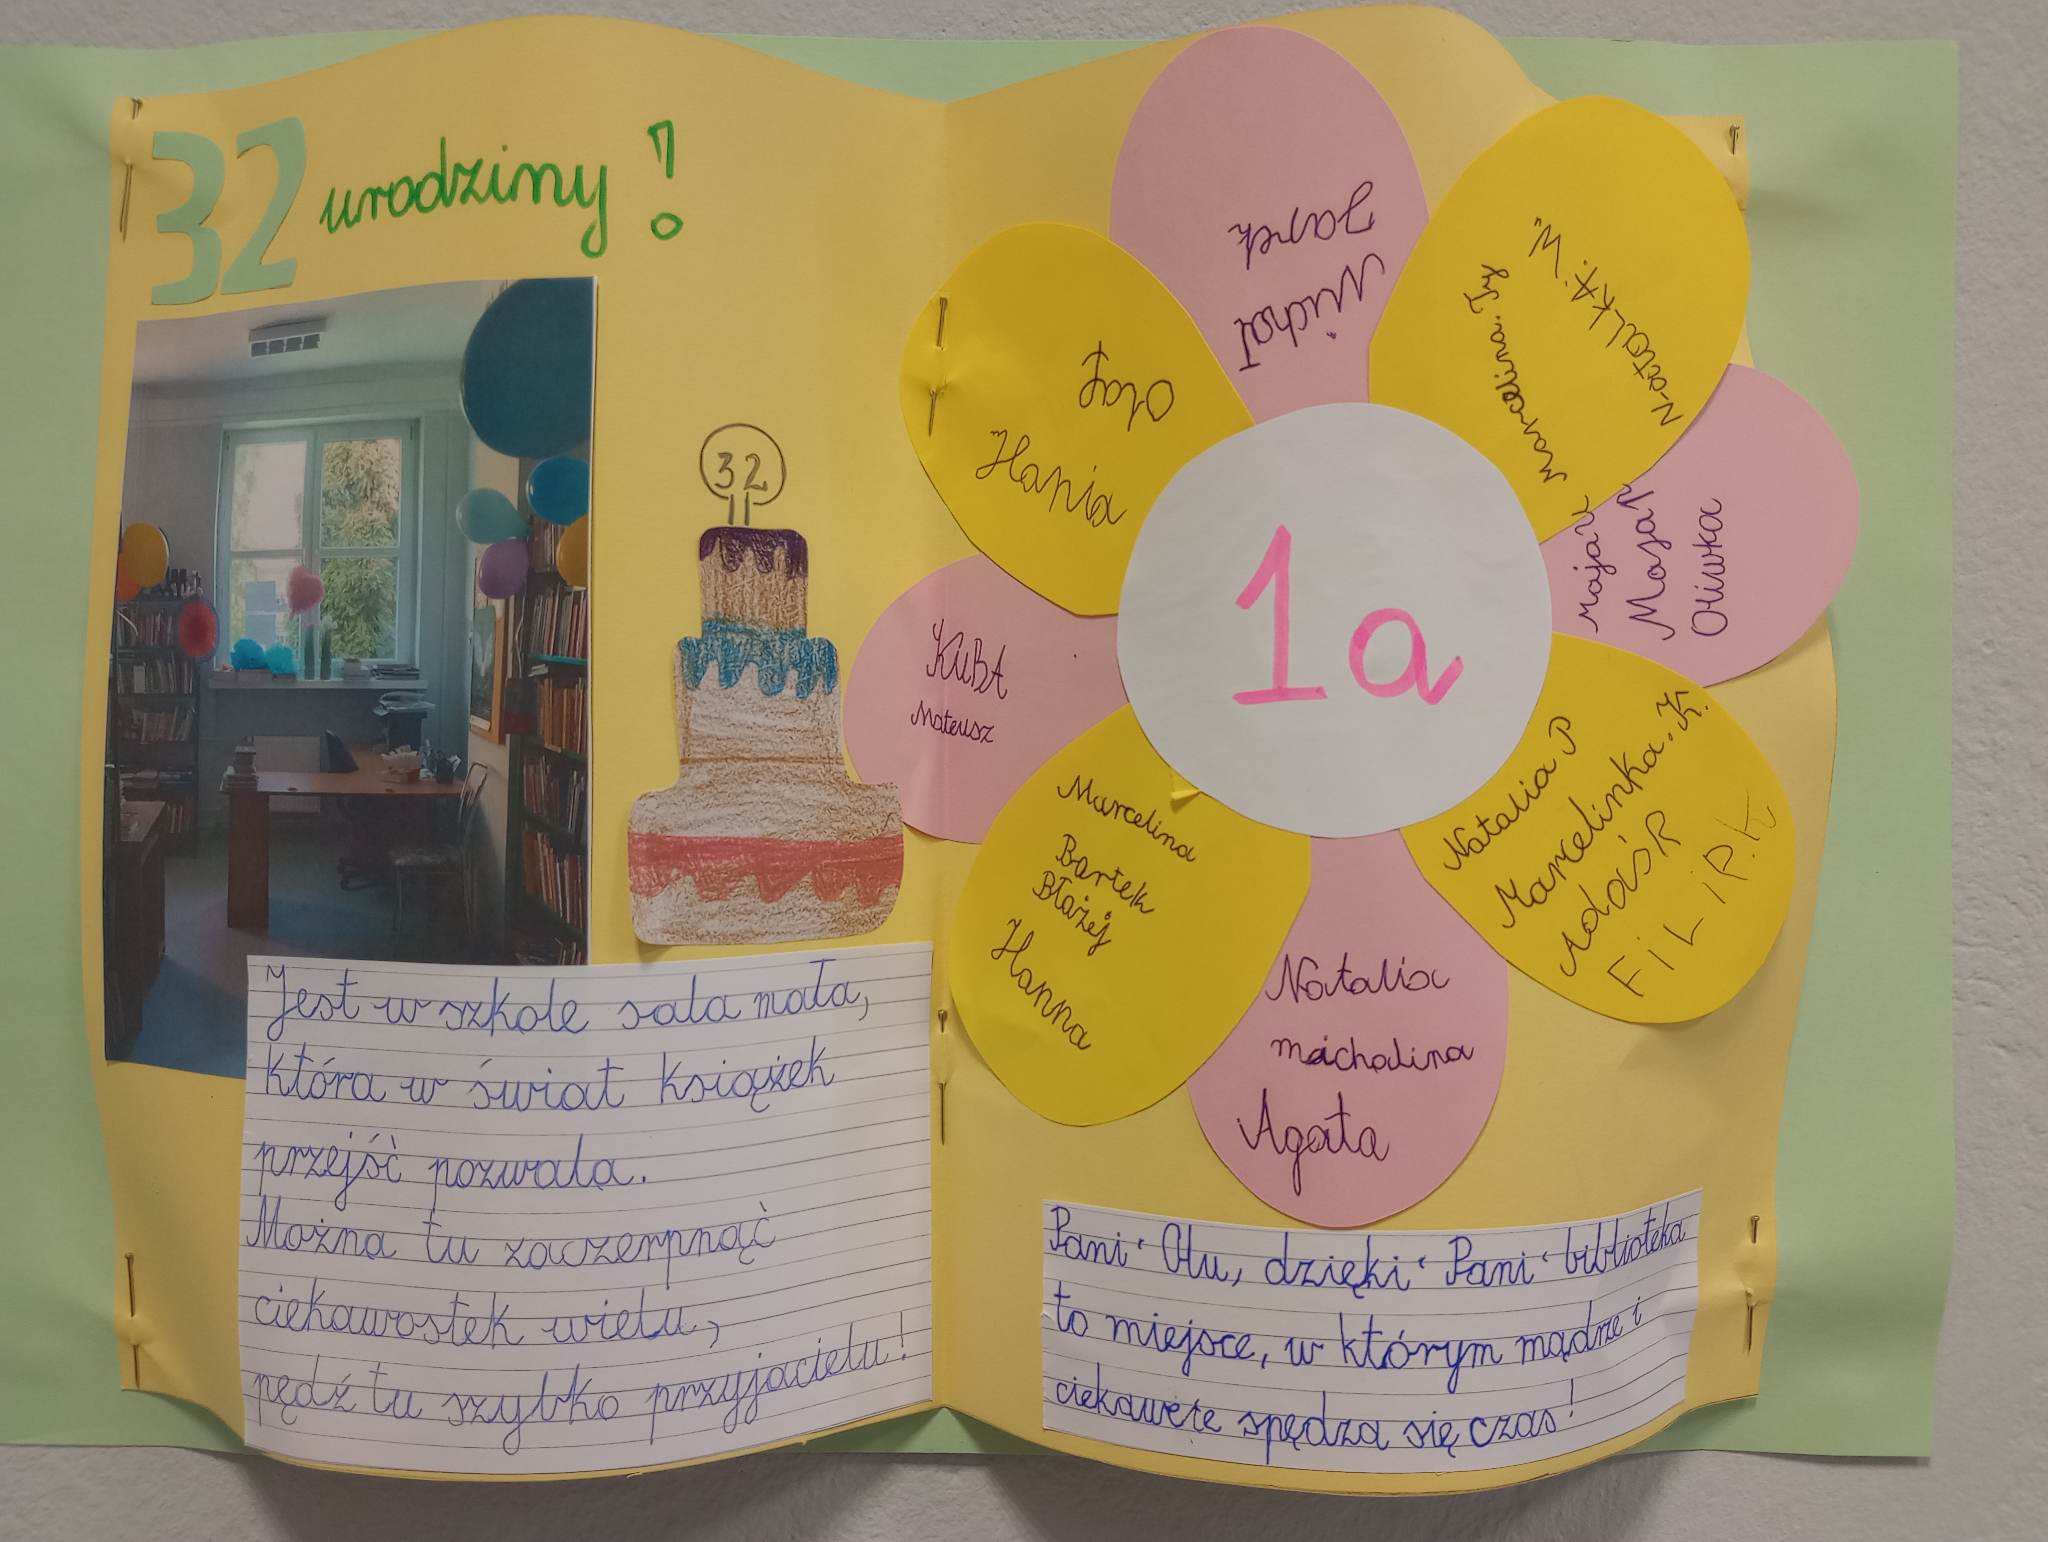 32 urodziny!
32
Jest w szkole sala mała,
która w świat książek
przejść pozwala.
Można tu zaczerpnąć
ciekawostek wielu,
pędź tu szybko przyjacielu!
1a
Michał
Jarek
Marcelina. Ty
N-atalka. W.
Maja
Maja P
Oliwka
Natalia P
Marcelinka. K.
Adaś R
FiLiP. K
Natalia
michalina
Agata
Marcelina
Bartek
Błażej
Hanna
KUBA
Mateusz
Olaf
Hania
Pani Olu, dzięki Pani biblioteka
to miejsce, w którym mądrze i
ciekawie spędza się czas!